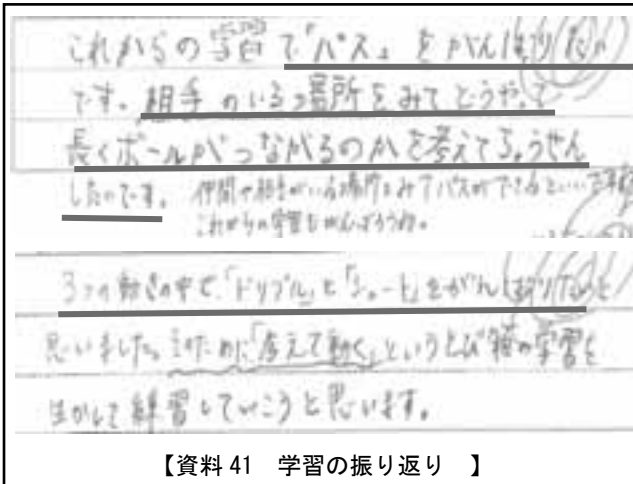 これからの学習で「パス」をがんばりたい
です。相手のいる場所をみてどうやって
長くボールがつながるのかを考えてちょうせん
したいです。仲間や相手がいる場所をみてパスができると…
これからの学習もがんばろうね。
3つの動きの中で、「ドリブル」と「シュート」をがんばりたいと
思いました。そのために「考えて動く」というとび箱の学習を
生かして練習していこうと思います。
【資料 41 学習の振り返り 】